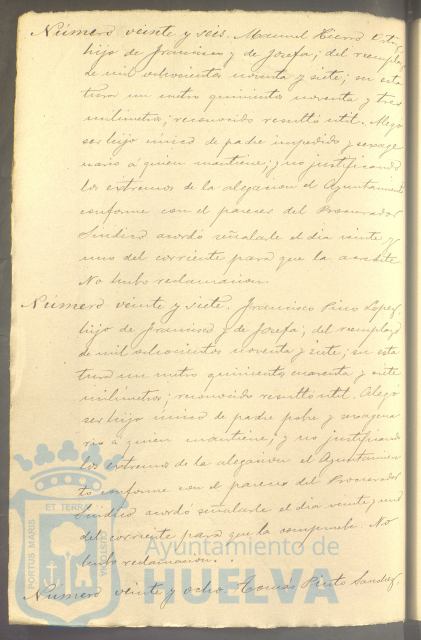 Número veinte y seis. Manuel Hierro Orti,
hijo de Francisco y de Josefa; del reemplazo
de mil ochocientos noventa y siete; su esta
tura un metro quinientos noventa y tres
milimetros; reconocido resultó util. Alegó
ser hijo único de padre impedido y sexage
nario á quien mantiene; y no justificando
los extremos de la alegacion el Ayuntamiento
conforme con el parecer del Procurador
Sindico acordó señalarle el dia veinte y
uno del corriente para que la acredite.
No hubo reclamacion.
Número veinte y siete. Francisco Pino Lopez,
hijo de Francisco y de Josefa; del reemplazo
de mil ochocientos noventa y siete; su esta
tura un metro quinientos cuarenta y siete
milimetros; reconocido resultó util. Alegó
ser hijo único de padre pobre y sexagena
rio á quien mantiene; y no justificando
los extremos de la alegacion el Ayuntamien
to conforme con el parecer del Procurador
Sindico acordó señalarle el dia veinte y uno
del corriente para que la compruebe. No
hubo reclamacion.
Número veinte y ocho. Tomás Pinto Sanchez,
PORTUS MARIS
ET TERRÆ
CUSTODIA
Ayuntamiento de
HUELVA